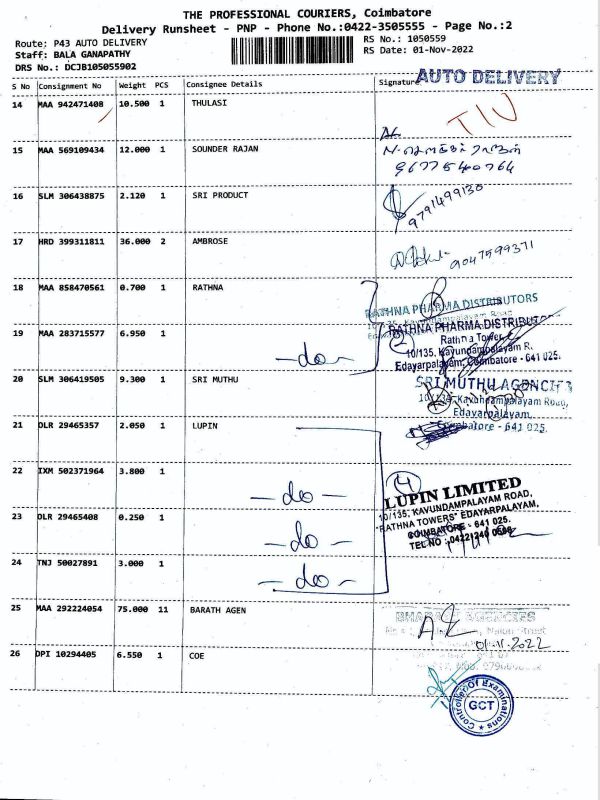 THE PROFESSIONAL COURIERS, Coimbatore
Delivery Runsheet - PNP - Phone No.:0422-3505555 - Page No.:2
Route: P43 AUTO DELIVERY
RS No.: 1050559
Staff: BALA GANAPATHY
RS Date: 01-Nov-2022
DRS No.: DCJB105055902
AUTO DELIVERY
S No Consignment No Weight PCS Consignee Details Signature
14 MAA 942471408 10.500 1 THULASI
15 MAA 569109434 12.000 1 SOUNDER RAJAN
9677540764
16 SLM 306438875 2.120 1 SRI PRODUCT
9791499130
17 HRD 399311811 36.000 2 AMBROSE
9047599371
18 MAA 858470561 0.700 1 RATHNA
RATHNA PHARMA DISTRIBUTORS
19 MAA 283715577 6.950 1 - do -
2
RATHNA PHARMA DISTRIBUTORS
10/135, Kavundampalayam R.
Edayarpalayam, Coimbatore - 641 025.
20 SLM 306419505 9.300 1 SRI MUTHU
SRI MUTHU AGENCIES
Kavundampalayam Road,
Edayarpalayam,
Coimbatore - 641 025.
21 DLR 29465357 2.050 1 LUPIN
22 IXM 502371964 3.800 1 - do -
4
LUPIN LIMITED
10/135, KAVUNDAMPALAYAM ROAD,
"RATHNA TOWERS" EDAYARPALAYAM,
COIMBATORE - 641 025.
23 DLR 29465408 0.250 1 - do -
24 TNJ 50027891 3.000 1 - do -
25 MAA 292224054 75.000 11 BARATH AGEN
AGENCIES
01.11.2022
26 DPI 10294405 6.550 1 COE
Controller Of Examinations
GCT